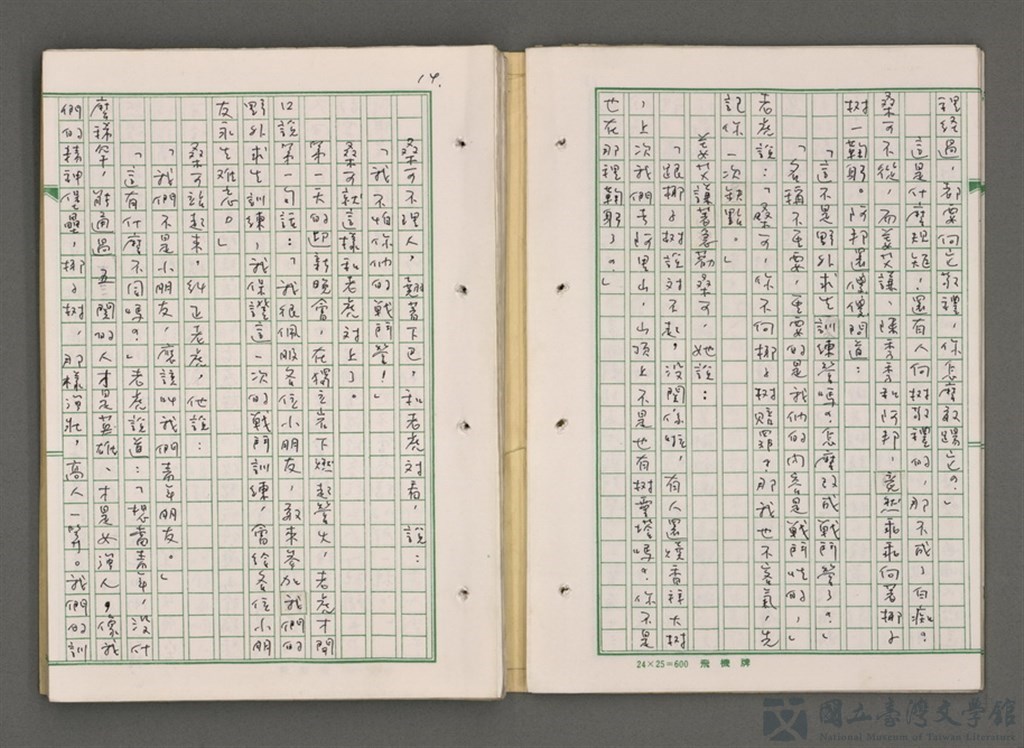 裡經過，都要向它敬禮，你怎麼敢踢它。」
這是什麼規矩？還有人向樹敬禮的，那不成了白痴？
桑可不從，而姜艾謙、陳秀秀和阿邦，竟然乖乖向著椰子
樹一鞠躬。阿邦還傻傻問道：
「這不是野外求生訓練營嗎？怎麼改成戰鬥營了？」
「名稱不重要，重要的是我們的內容是戰鬥性的，」
老虎說：「桑可，你不向椰子樹賠罪？那我也不客氣，先
記你一次缺點。」
姜艾謙著急勸桑可，她說：
「跟椰子樹說對不起，沒關係啦，有人還燒香拜大樹
，上次我們去阿里山，山頂上不是也有樹靈塔嗎？你不是
也在那裡鞠躬了。」
14.
桑可不理人，翹著下巴，和老虎對看，說：
「我不怕你們的戰鬥營！」
桑可就這樣和老虎對上了。
第一天的迎新晚會，在獨立岩下燃起營火，老虎才開
口說第一句話：「我很佩服各位小朋友，敢來參加我們的
野外求生訓練，我保證這一次的戰鬥訓練，會給各位小朋
友永生難忘。」
桑可站起來，糾正老虎，他說：
「我們不是小朋友，應該叫我們青年朋友。」
「這有什麼不同嗎？」老虎說道：「想當青年，沒什
麼稀罕，能通過五關的人才是英雄、才是女強人，像我
們的精神堡壘，椰子樹，那樣強壯，高人一等。我們的訓
24×25=600 飛機牌
國立臺灣文學館
National Museum of Taiwan Literature